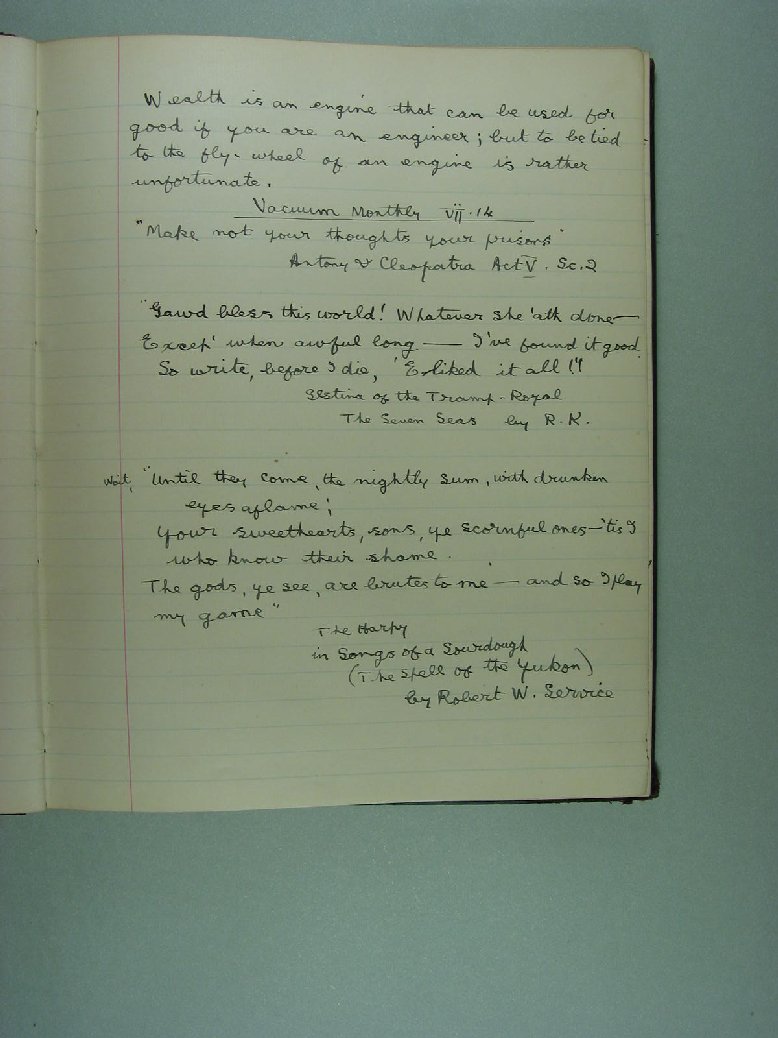 Wealth is an engine that can be used for
good if you are an engineer; but to be tied
to the fly-wheel of an engine is rather
unfortunate.
Vacuum Monthly VII.14
"Make not your thoughts your prisons"
Antony & Cleopatra Act V. Sc. 2
"Gawd bless this world! Whatever she 'ath done—
Excep' when awful long — I've found it good.
So write, before I die, 'E liked it all!"
Sestina of the Tramp-Royal
The Seven Seas by R.K.
Wait, "Until they come, the nightly sum, with drunken
eyes aflame;
Your sweethearts, sons, ye scornful ones—'tis I
who know their shame.
The gods, ye see, are brutes to me — and so I play
my game"
The Harpy
in Songs of a Sourdough
(The Spell of the Yukon)
by Robert W. Service